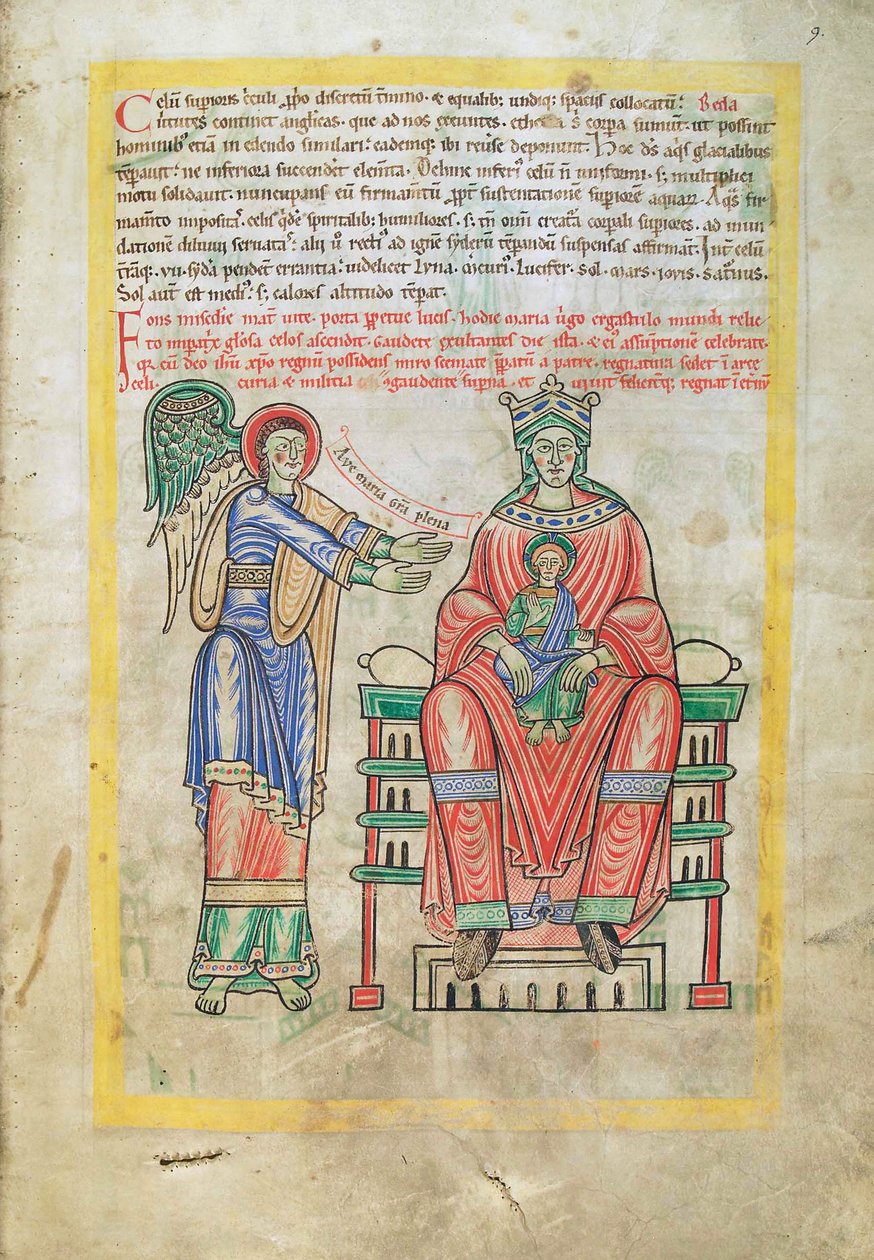 9.
Celū supioris c̄culi ꝓpo discretū t̄mino · & equalib; undiq; spaciis collocatū: Beda
v̄tutes continet anglicas · que ad nos exeuntes · etherea s̄ corpa sumunt · ut possint
hominib; etiā in edendo similari: eademq; ibi reūse deponunt · Hoc ds̄ aq̄s glacialibus
tēperauit: ne inferiora succendet elem̄ta · Dehinc inferi celū n̄ uniformi · s; multiplici
motu solidauit · nuncupans eū firmam̄tū ꝓpt sustentationē superiorē aquaꝝ · Aq̄s fir
mam̄to imposita · celis q̄de spiritalib; humiliores · s; tn̄ omī creata corpali supiores · ad inun
dationē diluuij seruata: alij ū recti ad ignē syderū tēpandū suspensas affirmant · Int celū
tr̄aq; · vii · syda pendent errantia: uidelicet Lyna · m̄curi · Lucifer · Sol · Mars · Iovis · Satnus ·
Sol aut est medi: s; calores altitudo tēpat ·
Fons misedie mat uite · porta ꝑpetue lucis · hodie maria ūgo ergastulo mundi relic
to impatx̄ glosa celos ascendit · Gaudete exultantes die ista · & ei assūptionē celebrate ·
qr cum deo ihū xpo regnum possidens miro scemate ꝑpatū a patre · regnatura sedet ī arce
celi · curia & militia gaudente supna · et uiuit felicitq; regnat ī etnū
Ave maria grā plena